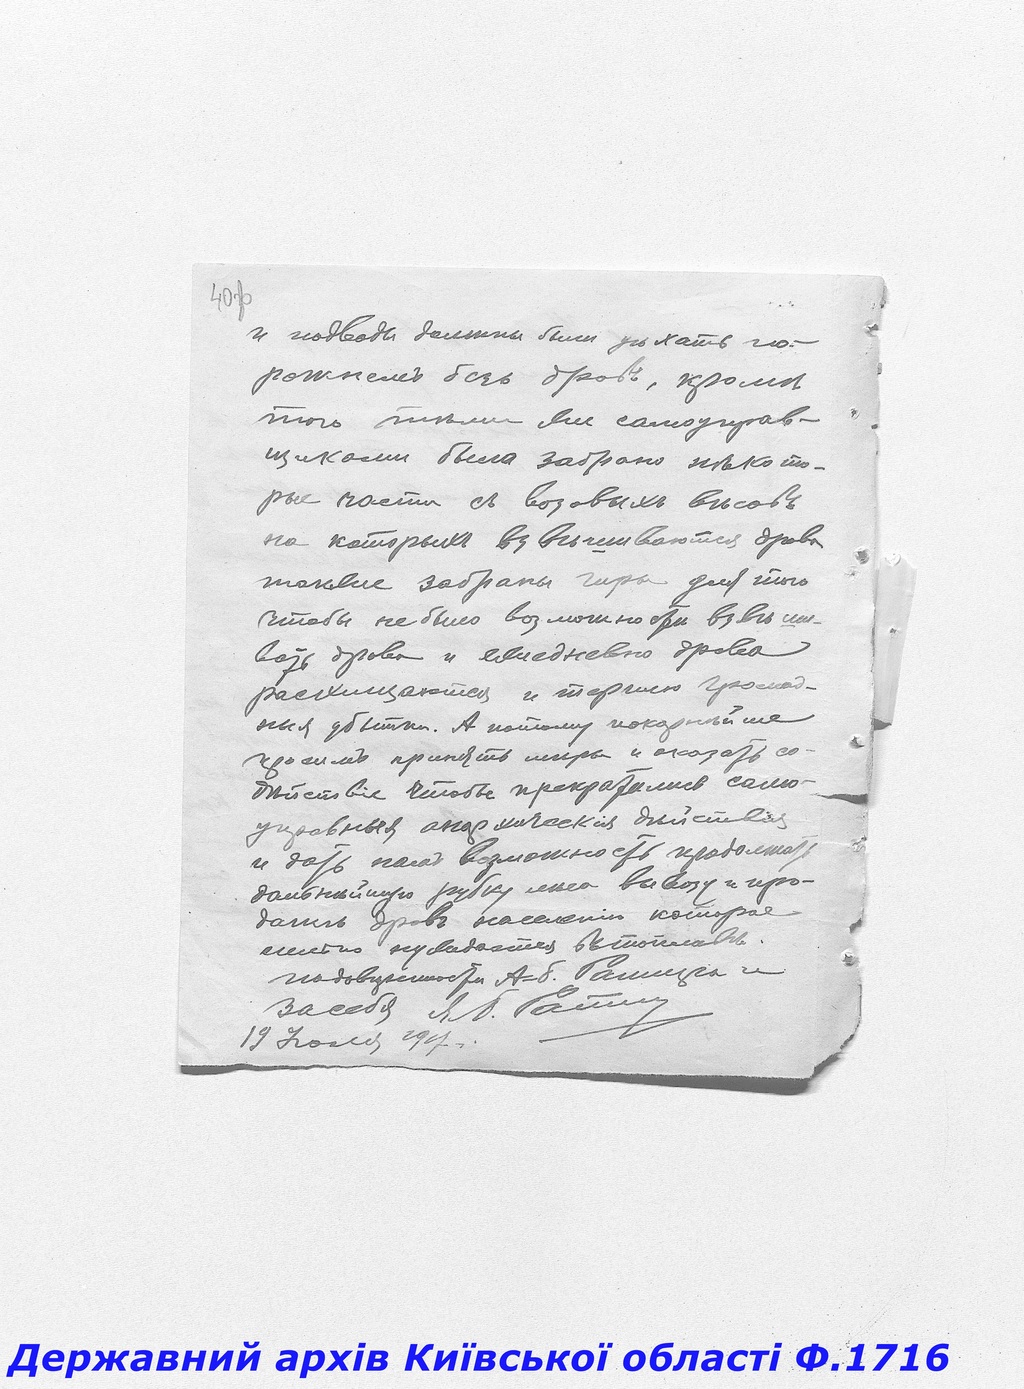 40об
и подводы должны были уѣхать по-
рожнемъ безъ дровъ, кромѣ
того тѣми же самоуправ-
щиками была забрано нѣкото-
рые части съ возовыхъ вѣсовъ
на которыхъ взвѣшиваются дрова
также забраны гири для того
чтобы не было возможности взвѣши-
вать дрова и ежедневно дрова
расхищаются и терплю громад-
ныя убытки. А потому покорнѣйше
просимъ принять меры и оказать со-
дѣйствіе чтобы прекратились само-
управныя анархическія дѣйствія
и дать намъ возможность продолжать
дальнѣйшую рубку леса вывозу и про-
дажи дровъ населенію которое
нуждается въ топливѣ.
по довѣренности А-Б. и
за себя Я. Б.
19 Іюля 1917 г.
Державний архів Київської області Ф.1716